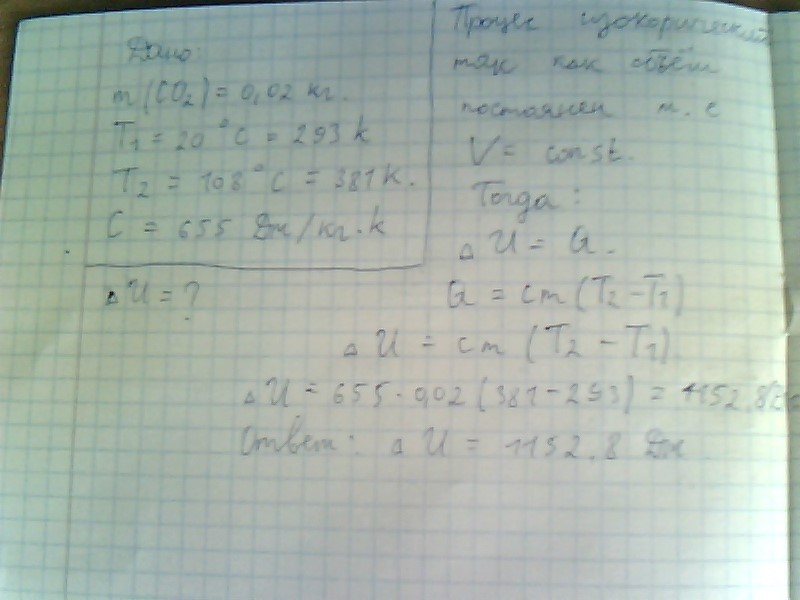 Дано:
m(CO₂) = 0,02 кг.
T₁ = 20°C = 293 k
T₂ = 108°C = 381 k.
C = 655 Дж/кг·k
ΔU = ?
Процес изохорический
так как объём
постоянен т. е
V = const.
Тогда:
ΔU = Q.
Q = cm (T₂ - T₁)
ΔU = cm (T₂ - T₁)
ΔU = 655 · 0,02 (381 - 293) = 1152,8
Ответ: ΔU = 1152,8 Дж